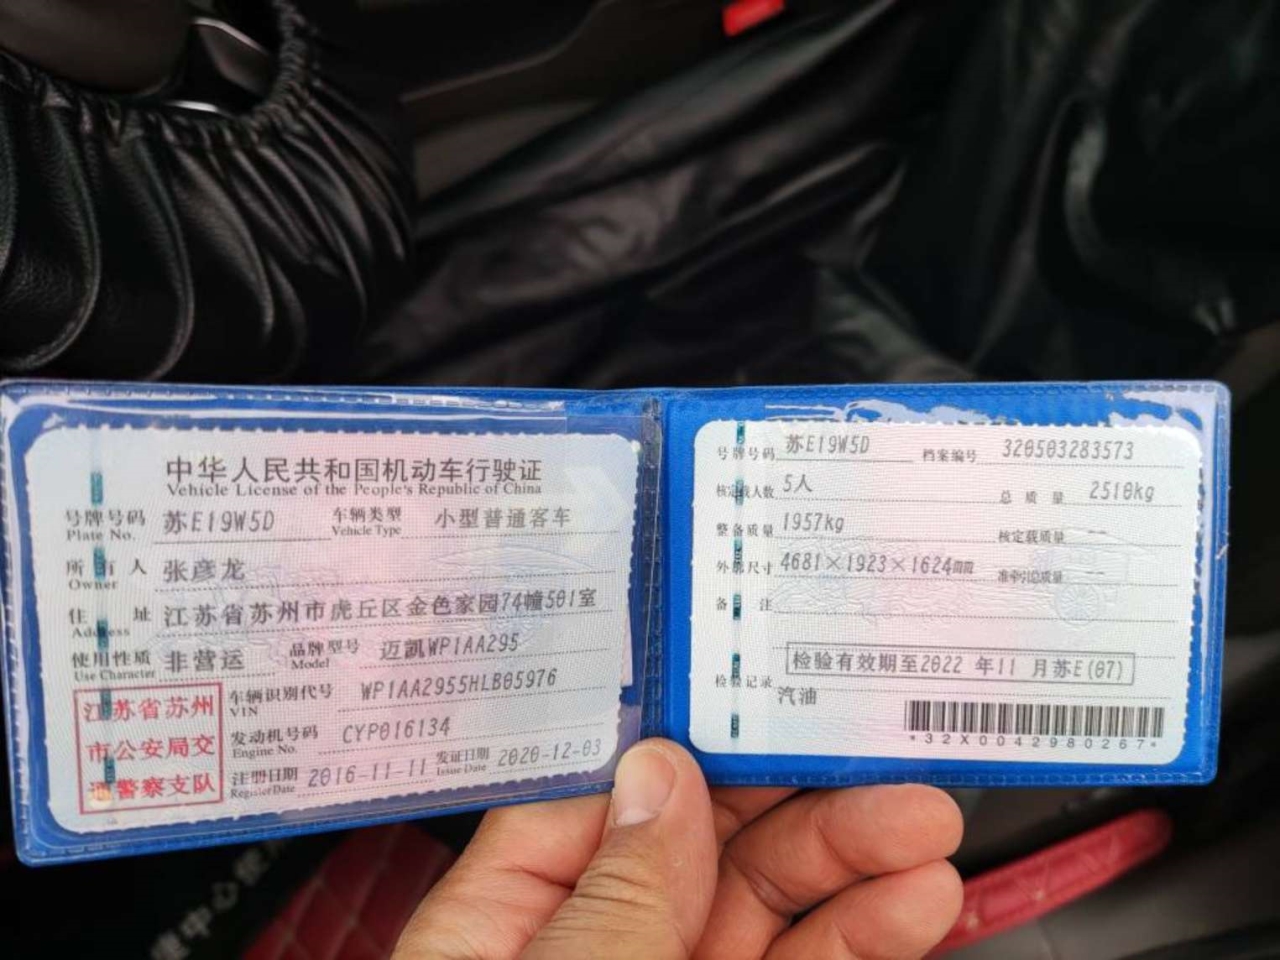 中华人民共和国机动车行驶证
Vehicle License of the People's Republic of China
号牌号码 苏E19W5D 车辆类型 小型普通客车
Plate No. Vehicle Type
所有人 张彦龙
Owner
住址 江苏省苏州市虎丘区金色家园74幢501室
Address
使用性质 非营运 品牌型号 迈凯WP1AA295
Use Character Model
江苏省苏州
市公安局交
通警察支队
车辆识别代号 WP1AA2955HLB05976
VIN
发动机号码 CYP016134
Engine No.
注册日期 2016-11-11 发证日期 2020-12-03
Register Date Issue Date
号牌号码 苏E19W5D 档案编号 320503283573
核定载人数 5人 总质量 2510kg
整备质量 1957kg 核定载质量 --
外廓尺寸 4681×1923×1624mm 准牵引总质量 --
备注
检验有效期至2022 年11 月苏E(07)
检验记录
汽油
*32X0042980267*